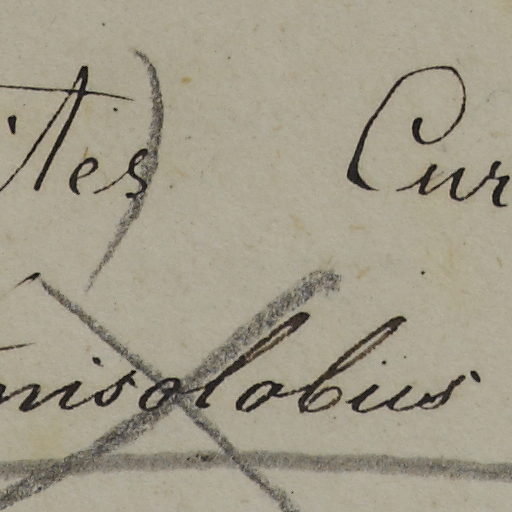 ites) Cur
nisolobius